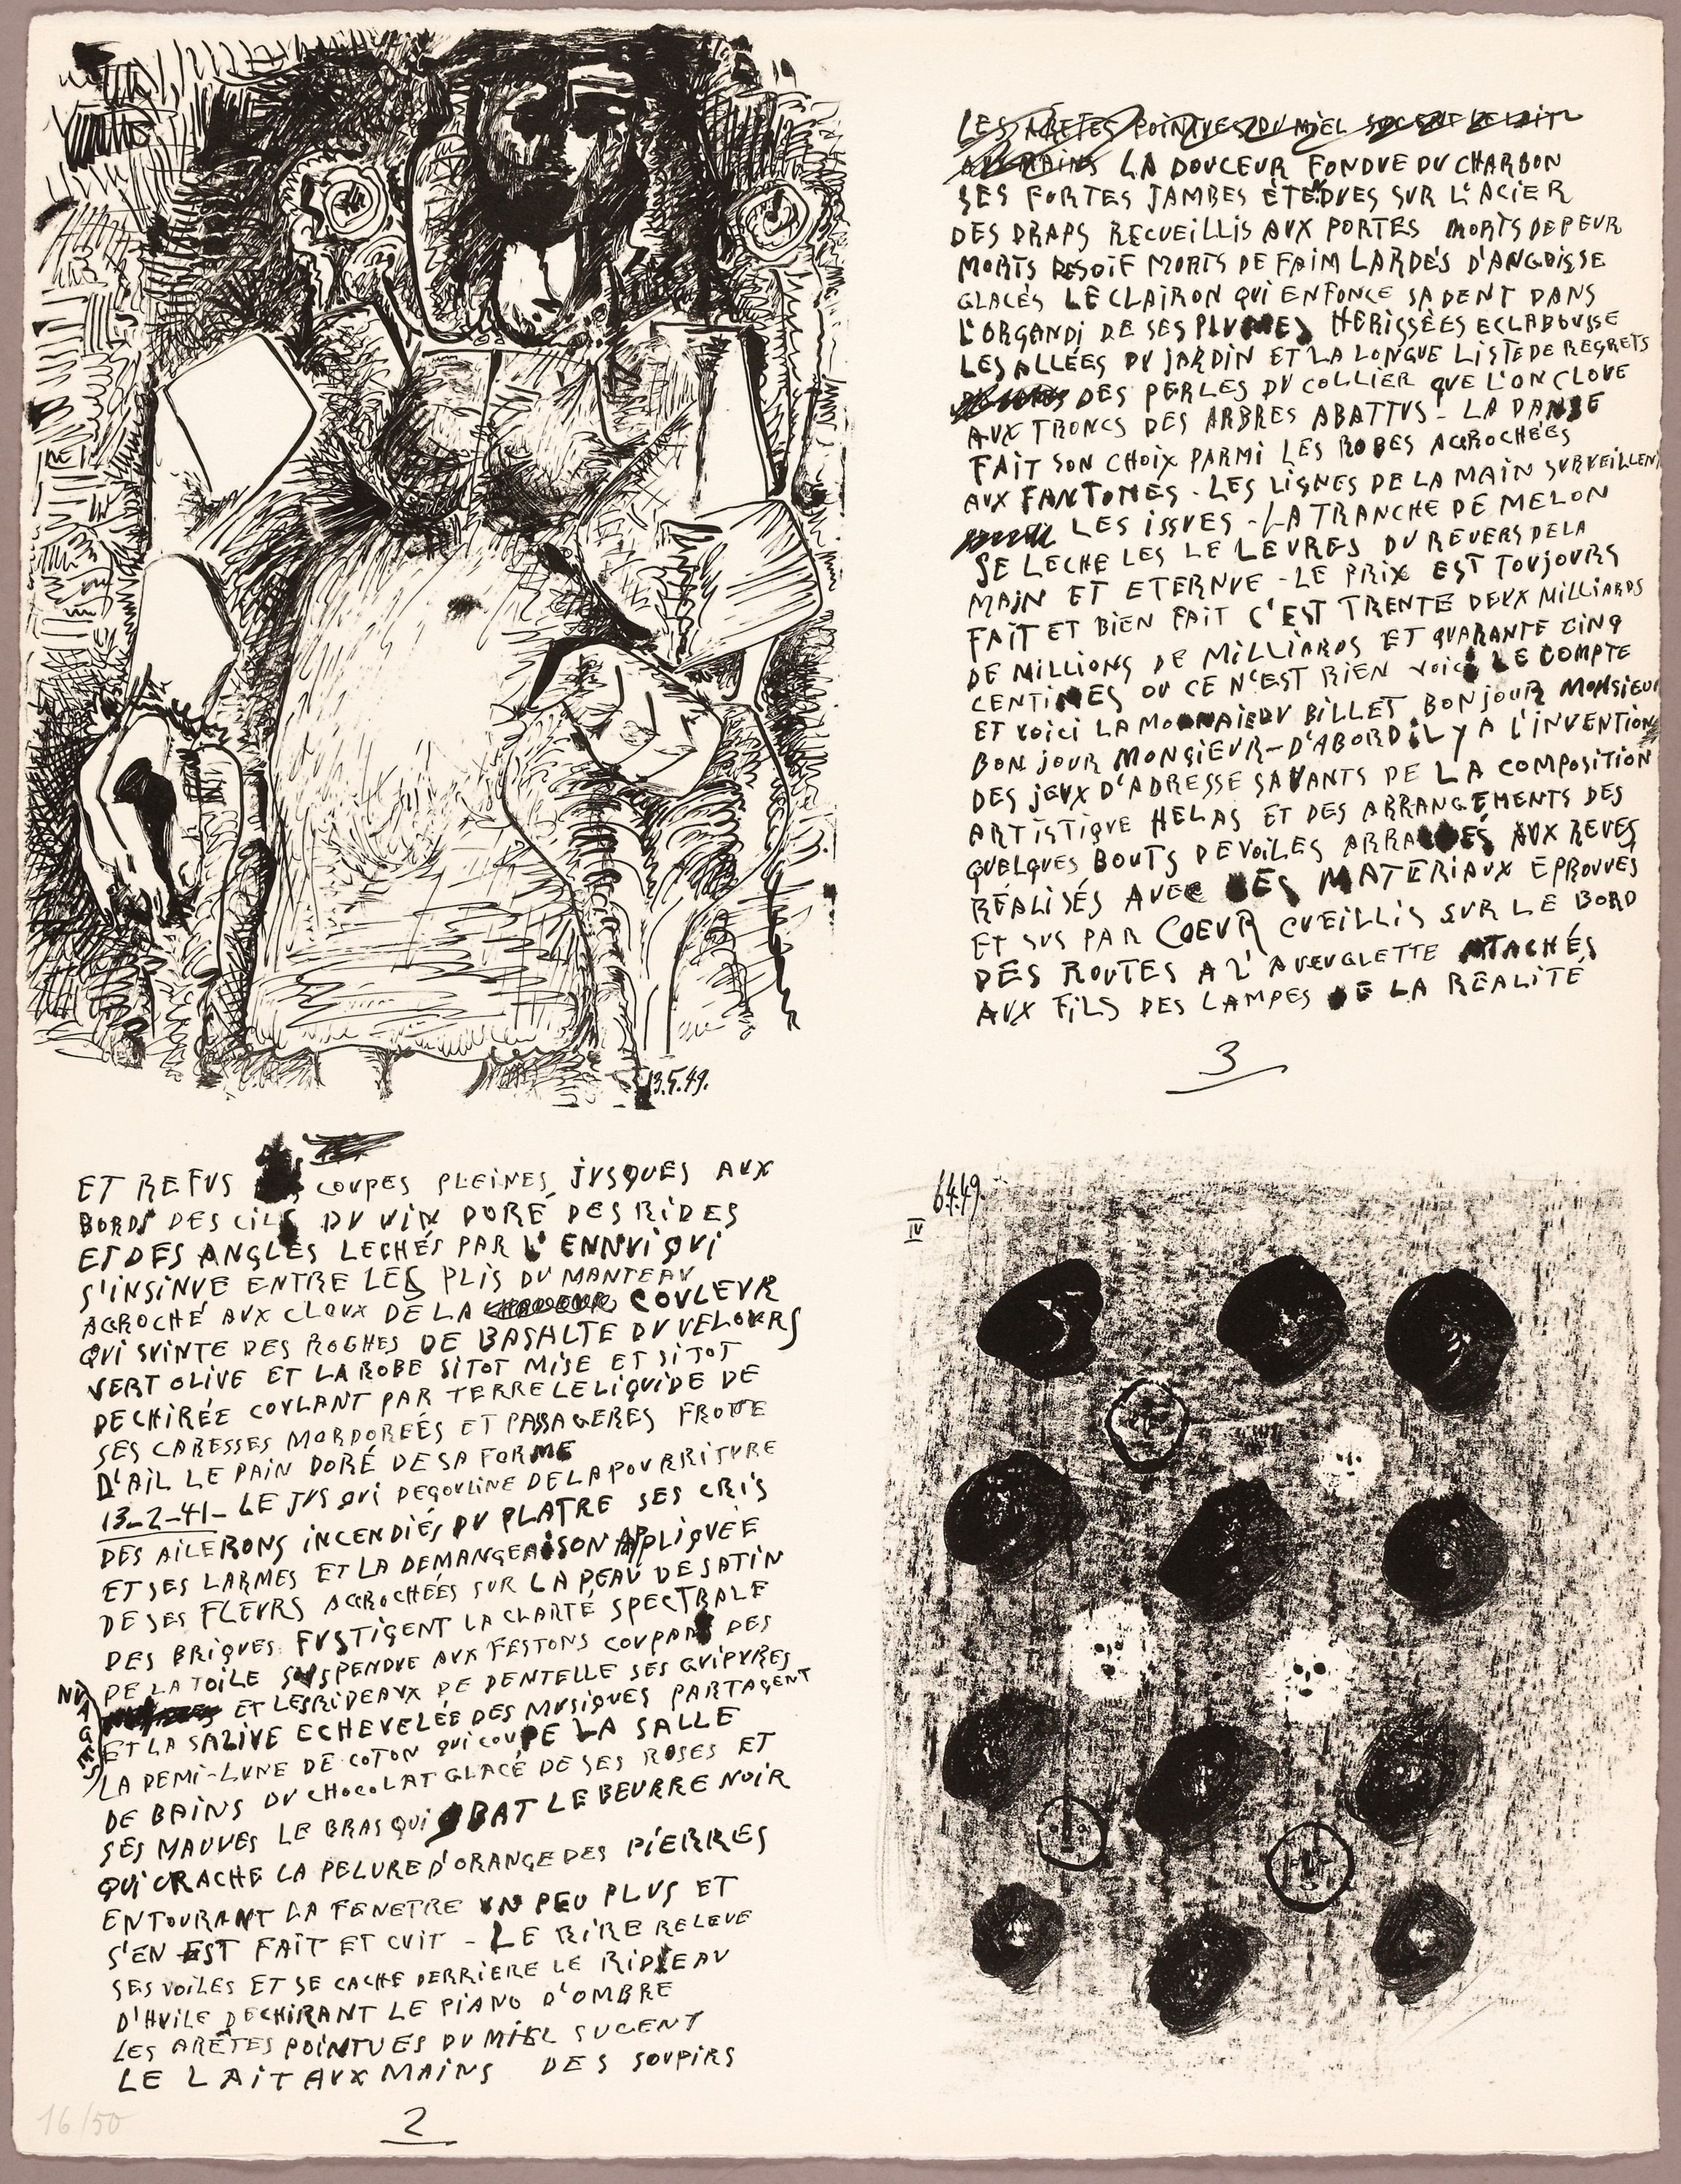 13.5.49.
LES ARÊTES POINTUES DU MIEL SUCENT LE LAIT
AUX MAINS LA DOUCEUR FONDUE DU CHARBON
SES FORTES JAMBES ÉTENDUES SUR L'ACIER
DES DRAPS RECUEILLIS AUX PORTES MORTS DE PEUR
MORTS DE SOIF MORTS DE FAIM LARDÉS D'ANGOISSE
GLACÉS LE CLAIRON QUI ENFONCE SA DENT DANS
L'ORGANDI DE SES PLUMES HERISSÈES ECLABOUSSE
LES ALLÉES DU JARDIN ET LA LONGUE LISTE DE REGRETS
DES PERLES DU COLLIER QUE L'ON CLOUE
AUX TRONCS DES ARBRES ABATTUS - LA DANSE
FAIT SON CHOIX PARMI LES ROBES ACCROCHÉES
AUX FANTOMES - LES LIGNES DE LA MAIN SURVEILLENT
LES ISSUES - LA TRANCHE DE MELON
SE LECHE LES LE LEVRES DU REVERS DE LA
MAIN ET ETERNUE - LE PRIX EST TOUJOURS
FAIT ET BIEN FAIT C'EST TRENTE DEUX MILLIARDS
DE MILLIONS DE MILLIARDS ET QUARANTE CINQ
CENTIMES OU CE N'EST RIEN VOICI LE COMPTE
ET VOICI LA MONNAIE DU BILLET BONJOUR MONSIEUR
BONJOUR MONSIEUR - D'ABORD IL Y A L'INVENTION
DES JEUX D'ADRESSE SAVANTS DE LA COMPOSITION
ARTISTIQUE HELAS ET DES ARRANGEMENTS DES
QUELQUES BOUTS DE VOILES ARRACHÉS AUX REVES
RÉALISÉS AVEC DES MATERIAUX EPROUVÉS
ET SUS PAR COEUR CUEILLIS SUR LE BORD
DES ROUTES A L'AVEUGLETTE ATTACHÉS
AUX FILS DES LAMPES DE LA RÉALITÉ
3
ET REFUS COUPES PLEINES JUSQUES AUX
BORDS DES CILS DU VIN DORÉ DES RIDES
ET DES ANGLES LECHÉS PAR L'ENNUI QUI
S'INSINUE ENTRE LES PLIS DU MANTEAU
ACCROCHÉ AUX CLOUX DE LA COULEUR
QUI SUINTE DES ROCHES DE BASALTE DU VELOURS
VERT OLIVE ET LA ROBE SITOT MISE ET SITOT
DECHIRÉE COULANT PAR TERRE LE LIQUIDE DE
SES CARESSES MORDORÉES ET PASSAGERES FROTTE
D'AIL LE PAIN DORÉ DE SA FORME
13-2-41- LE JUS QUI DEGOULINE DE LA POURRITURE
DES AILERONS INCENDIÉS DU PLATRE SES CRIS
ET SES LARMES ET LA DEMANGEAISON APLIQUÉE
DE SES FLEURS ACCROCHÉES SUR LA PEAU DE SATIN
DES BRIQUES FUSTIGENT LA CLARTÉ SPECTRALE
DE LA TOILE SUSPENDUE AUX FESTONS COUPANT DES
NUAGES ET LES RIDEAUX DE DENTELLE SES GUIPURES
ET LA SALIVE ECHEVELÉE DES MUSIQUES PARTAGENT
LA DEMI-LUNE DE COTON QUI COUPE LA SALLE
DE BAINS DU CHOCOLAT GLACÉ DE SES ROSES ET
SES MAUVES LE BRAS QUI BAT LE BEURRE NOIR
QUI CRACHE LA PELURE D'ORANGE DES PIERRES
ENTOURANT LA FENETRE UN PEU PLUS ET
S'EN EST FAIT ET CUIT - LE RIRE RELEVE
SES VOILES ET SE CACHE DERRIERE LE RIDEAU
D'HUILE DECHIRANT LE PIANO D'OMBRE
LES ARÊTES POINTUES DU MIEL SUCENT
LE LAIT AUX MAINS DES SOUPIRS
2
16/50
6.4.49.
IV